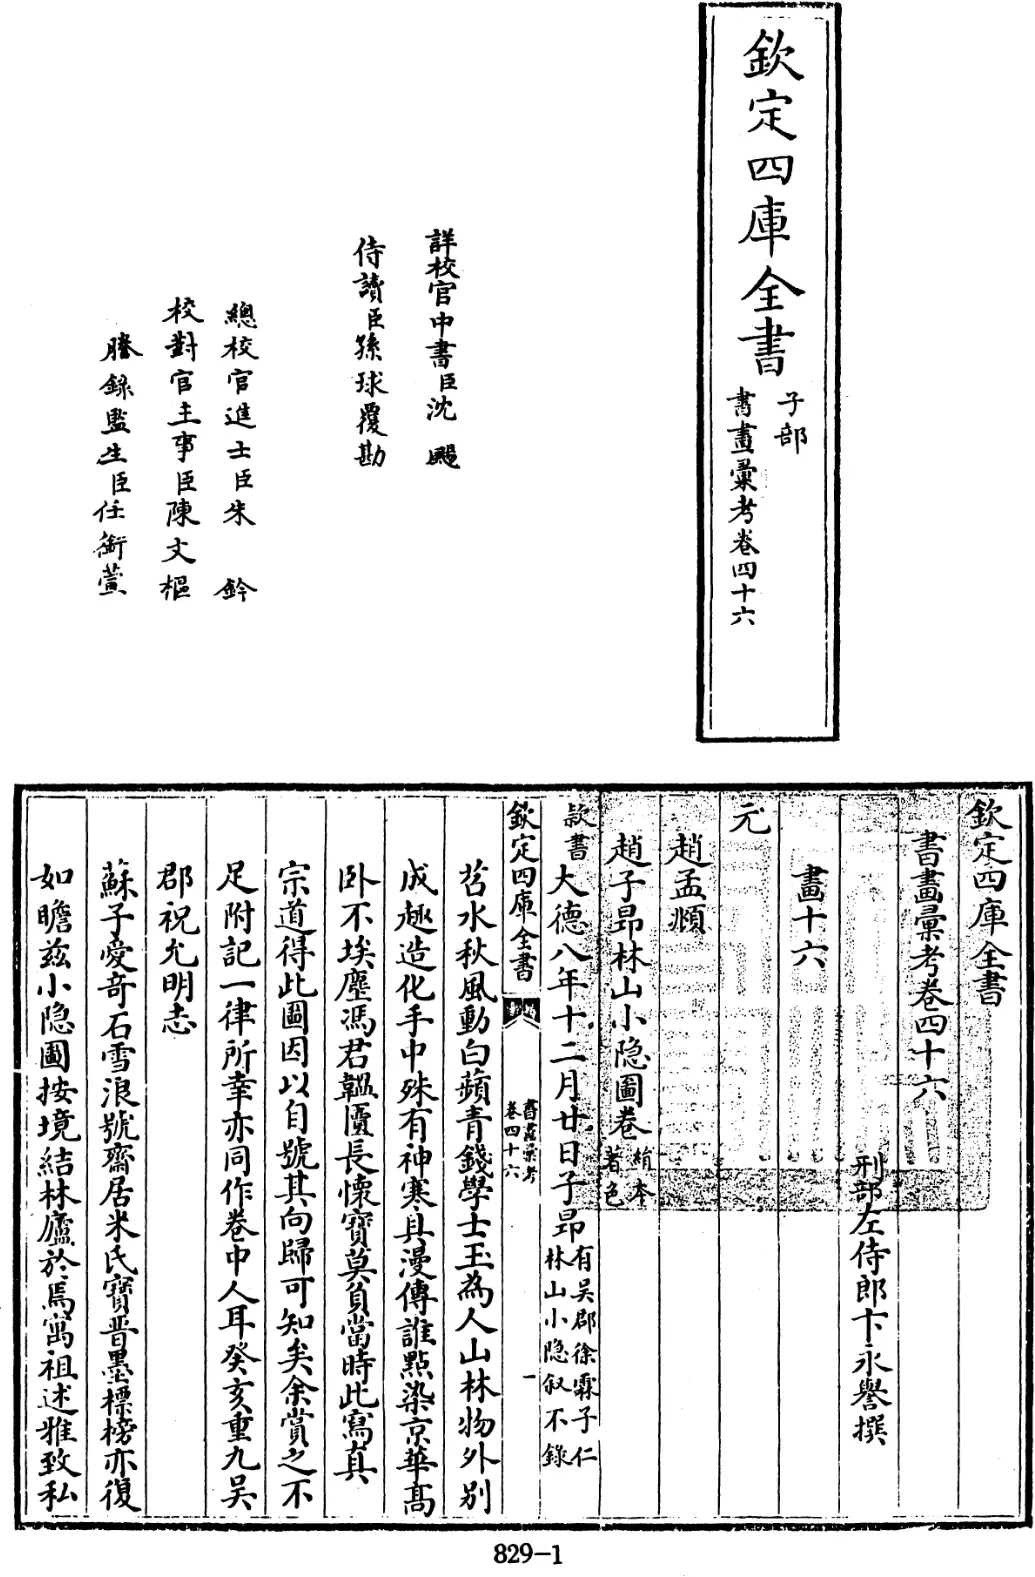 欽定四庫全書
子部
書畫彙考卷四十六
詳校官中書臣沈颺
侍讀臣孫球覆勘
總校官進士臣朱鈐
校對官主事臣陳文樞
謄錄監生臣任銜蕙
欽定四庫全書
書畫彙考卷四十六
刑部左侍郎卞永譽撰
畫十六
元
趙孟頫
趙子昂林山小隐圖卷 絹本著色
款書大德八年十二月廿日子昂 有吴郡徐霖子仁林山小隐叙不錄
欽定四庫全書
書畫彙考
卷四十六
一
苕水秋風動白蘋青錢學士玉為人山林物外别
成趣造化手中殊有神寒具漫傳誰點染京華髙
卧不埃塵馮君韞匵長懷寳莫負當時此寫真
宗道得此圖因以自號其向歸可知矣余賞之不
足附記一律所幸亦同作卷中人耳癸亥重九吴
郡祝允明志
蘇子愛奇石雪浪號齋居米氏寳晋墨標榜亦復
如瞻兹小隐圖按境結林廬於焉寓祖述雅致私
829-1